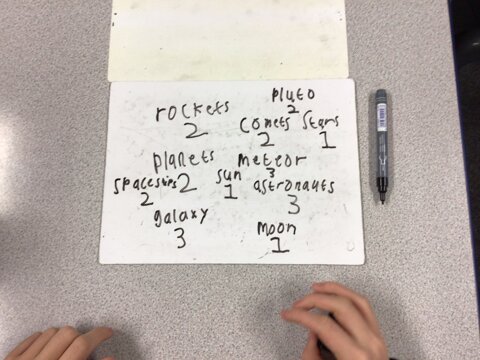 pluto
2
rockets
2
comets
2
stars
1
planets
2
meteor
3
spacestips
2
sun
1
astronauts
3
galaxy
3
moon
1